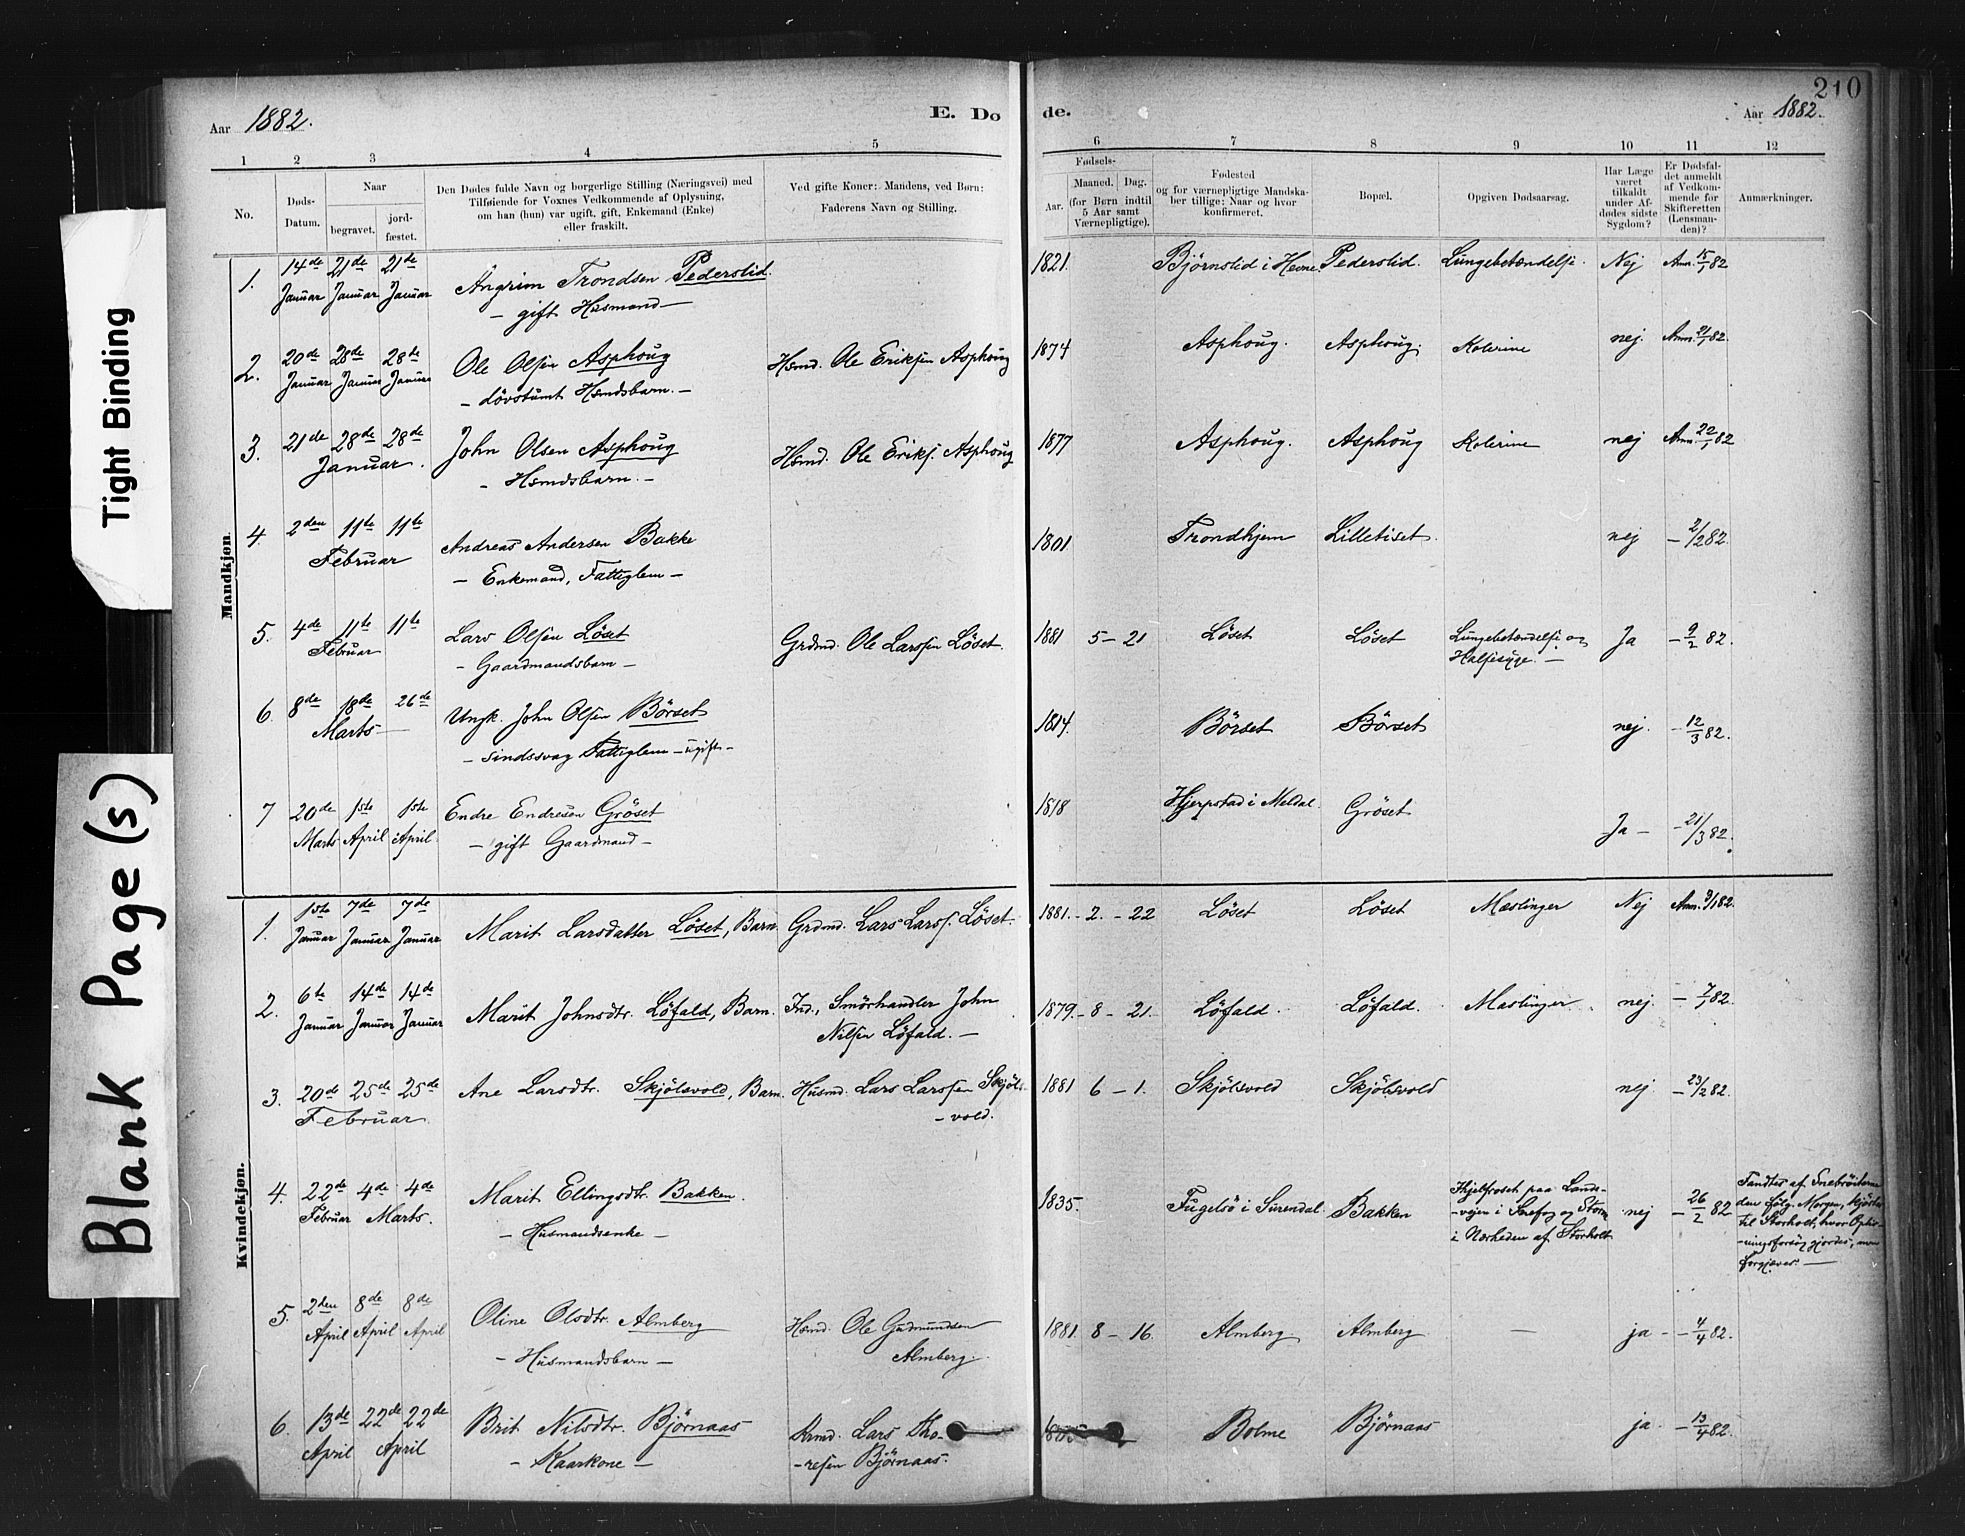 210
Aar 1882.
E. Dø
de.
Aar 1882.
1 2 3 4 5
6 7 8 9 10 11 12
No.
Døds-
Datum.
Naar
begravet.
jord-
fæstet.
Den Dødes fulde Navn og borgerlige Stilling (Næringsvei) med
Tilføiende for Voxnes Vedkommende af Oplysning,
om han (hun) var ugift, gift, Enkemand (Enke)
eller fraskilt.
Ved gifte Koner: Mandens, ved Børn:
Faderens Navn og Stilling.
Fødsels-
Aar.
Maaned. Dag.
(for Børn indtil
5 Aar samt
Værnepligtige).
Fødested
og for værnepligtige Mandska-
ber tillige: Naar og hvor
konfirmeret.
Bopæl.
Opgiven Dødsaarsag.
Har Læge
været
tilkaldt
under Af-
dødes sidste
Sygdom?
Er Dødsfal-
det anmeldt
af Vedkom-
mende for
Skifteretten
(Lensman-
den)?
Anmærkninger.
Mandkjøn.
1. 14de Januar 21de Januar 21de Januar
Angrim Trondsen Pederslid.
- gift Husmand -
1821. Bjørnslid i Hevne Pederslid. Lungebetændelse. Nej Anm. 15/1 82
2. 20de Januar 28de Januar 28de Januar
Ole Olsen Asphoug
- døvstumt Hsmdsbarn. -
Hsmd. Ole Eriksen Asphoug
1874 Asphoug. Asphoug. Kolerine nej. Anm. 21/1 82.
3. 21de 28de 28de
Januar.
John Olsen Asphoug
- Hsmdsbarn. -
Hsmd. Ole Eriks. Asphoug
1877 Asphoug. Asphoug Kolerine nej Anm. 22/1 82
4. 2den 11te 11te
Februar
Andreas Andersen Bakke
- Enkemand, Fattiglem -
1801 Trondhjem Lilletiset. nej - 2/2 82.
5. 4de 11te 11te
Februar
Lars Olsen Løset
- Gaardmandsbarn -
Grdmd. Ole Larssen Løset.
1881 5 - 21 Løset Løset Lungebetændelse og
Halsesyge. -
Ja - 9/2 82.
6. 8de 18de 26de
Marts -
Ungk. John Olsen Børset
- Sindssvag Fattiglem - ugift -
1814. Børset Børset nej. - 12/3 82.
7 20de Marts 1ste April 1ste April.
Endre Endresen Grøset
- gift Gaardmand -
1818 Hjerpstad i Meldal. Grøset Ja - - 21/3 82.
Kvindekjøn.
1. 1ste Januar 7de Januar 7de Januar
Marit Larsdatter Løset, Barn. Grdmd. Lars Larss. Løset.
1881. - 2. - 22 Løset Løset Mæslinger Nej Anm. 3/1 82.
2. 6te Januar 14de Januar 14de Januar
Marit Johnsdtr. Løfald, Barn. Ind., Smørhandler John
Nilsen Løfald. -
1879. - 8 - 21. Løfald. Løfald. Mæslinger nej. - 7/1 82.
3. 20de 25de 25de
Februar.
Ane Larsdtr. Skjølsvold, Barn. Husmd. Lars Larssen Skjøls
- vold.
1881 6 - 1. Skjølsvold Skjølsvold nej. - 23/2 82.
4. 22de Februar 4de 4de Marts.
Marit Ellingsdtr. Bakken.
- Husmandsenke -
1835. Fugelsø i Surendal. Bakken
Ihjelfroset paa Lands-
- vejen i Snefog og Storm
i Nærheden af Storholt
nej - 26/2 82
Fandtes af Snebrøiterne
den følg. Morgen, kjørtes
til Storholt, hvor Opliv-
- ningsforsøg gjordes, men
forgjæves. -
5. 2den April 8de April 8de April
Oline Olsdtr. Almberg
- Husmandsbarn -
Hsmd. Ole Gudmundsen
Almberg.
1881. 8 - 16. Almberg Almberg - ja - - 4/4 82.
6. 13de April 22de 22de April
Brit Nilsdtr. Bjørnaas
- Kaarkone -
Krmd. Lars Tho-
- resen Bjørnaas.
Bolme Bjørnaas ja. - 13/4 82.
Tight Binding
Blank Page (s)